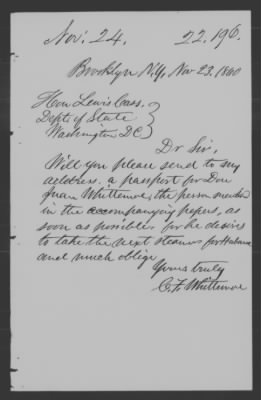 Nov. 24. 22.196.
Brooklyn N.Y. Nov 23. 1860
Hon Lewis Cass,
Dept of State
Washington D.C.
Dr Sir,
Will you please send to my
address. a passport for Don
Juan Whittemore, the person
in the accompanying papers, as
soon as possible, for he desires
to take the next steamer for Habana
and much oblige
Yours truly
C. F. Whittemore